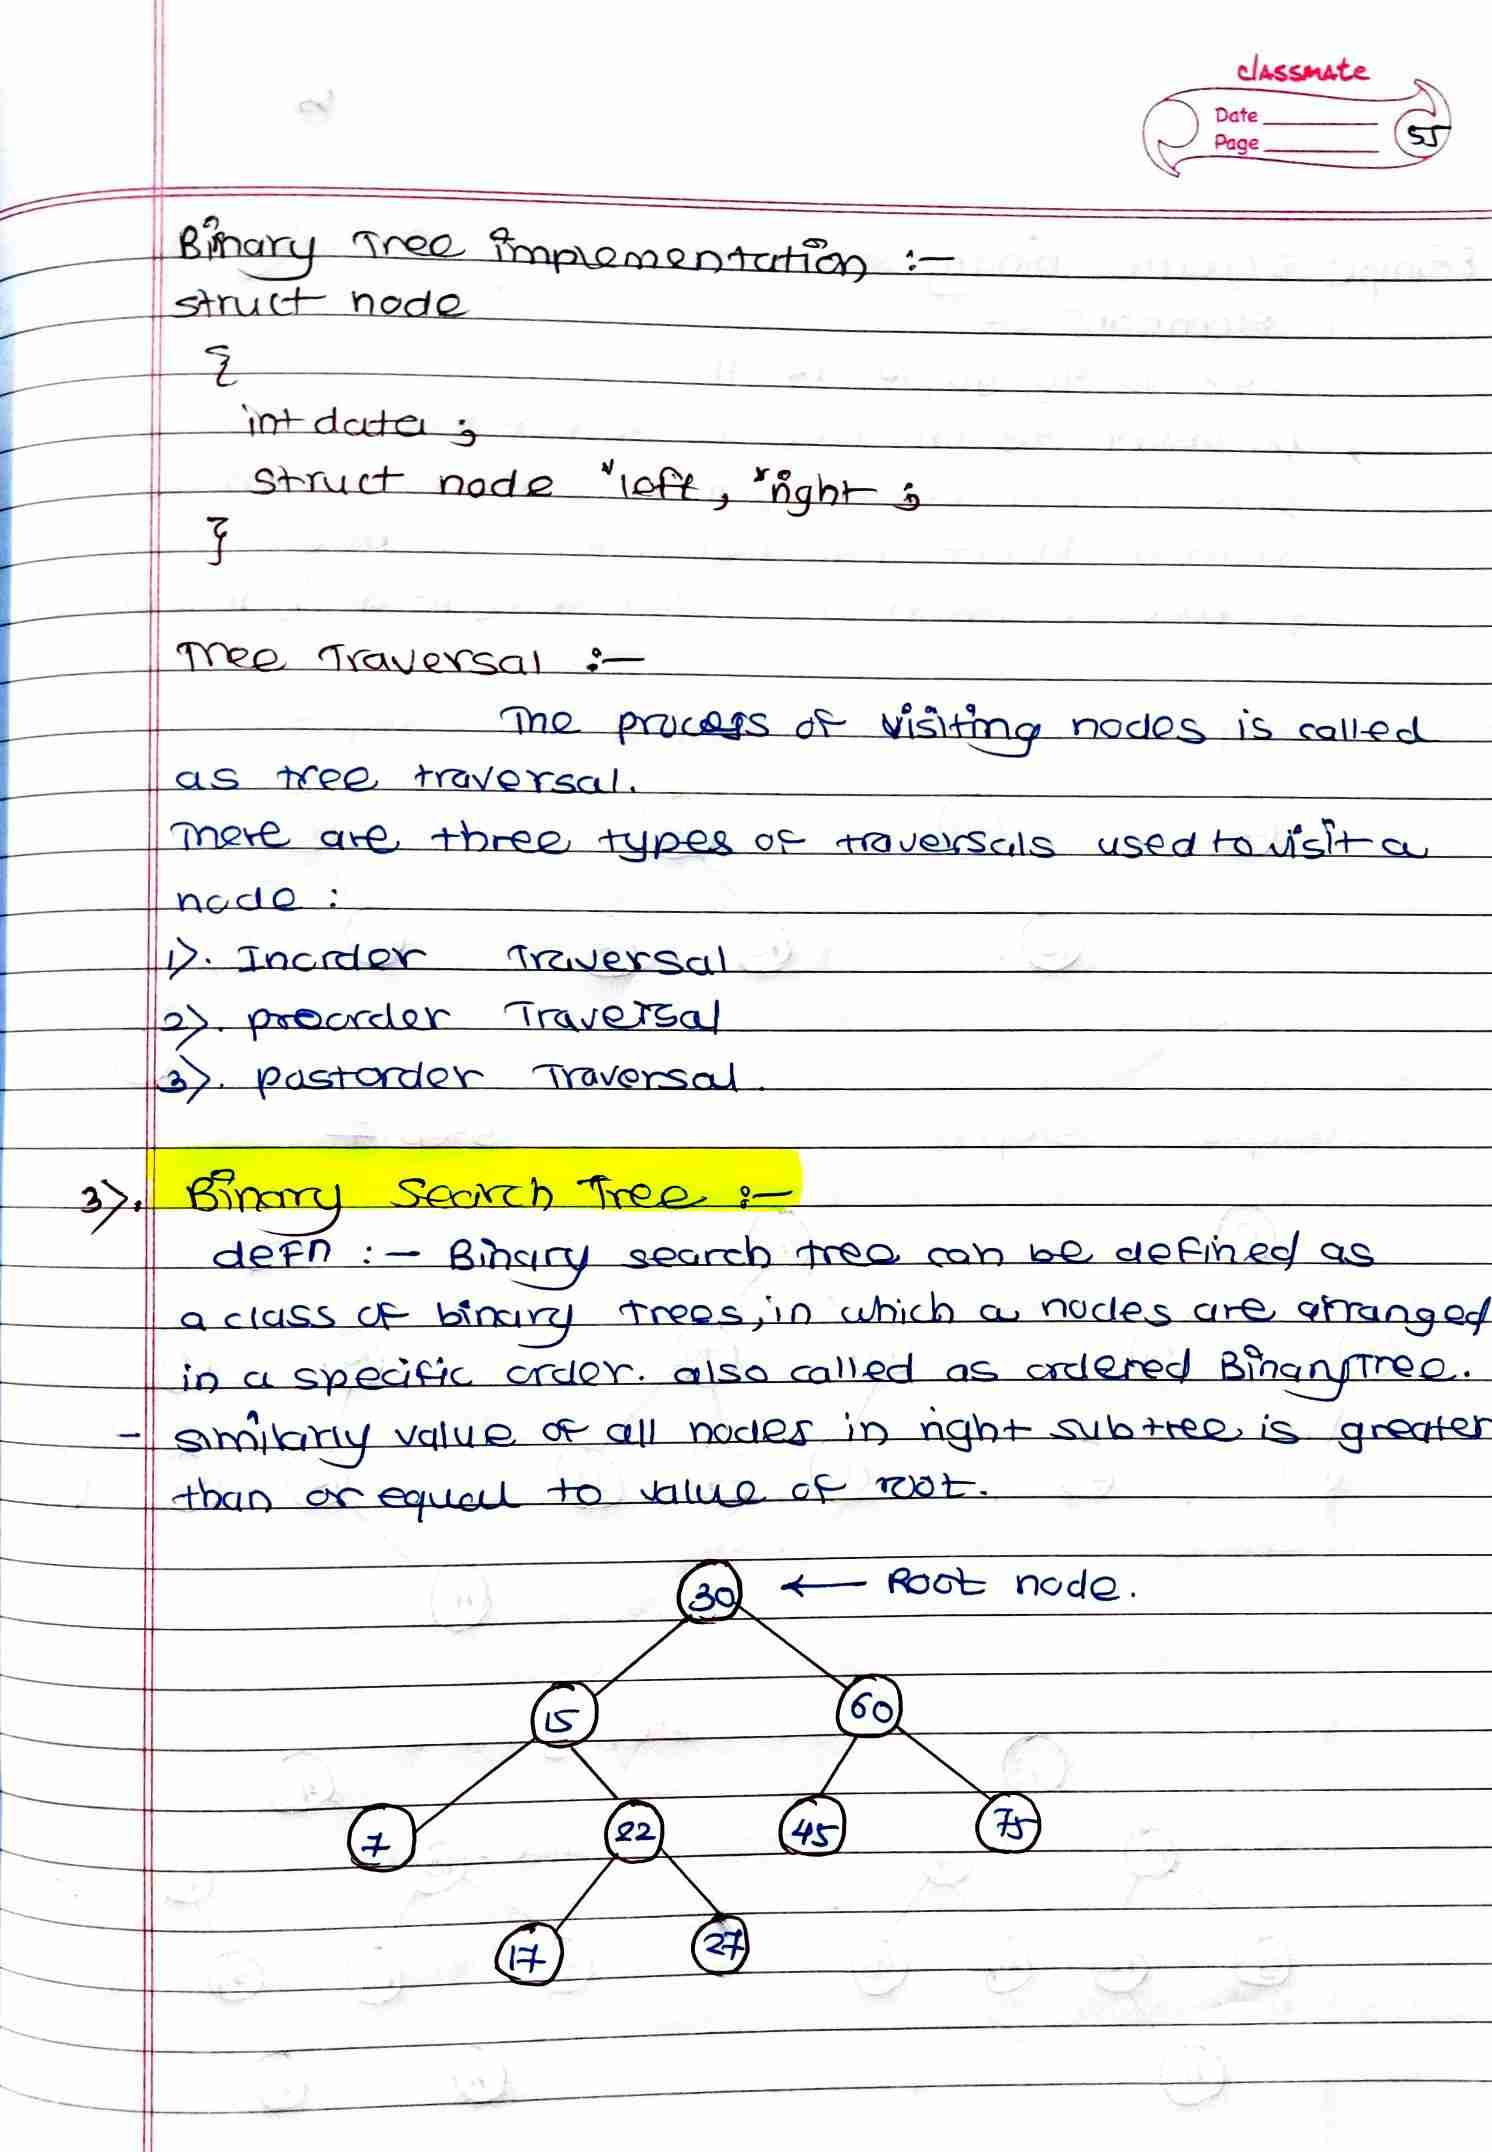 classmate
Date
Page
55
Binary Tree implementation :-
struct node
{
int data ;
struct node *left, *right ;
}
Tree Traversal :-
The process of visiting nodes is called
as tree traversal.
There are three types of traversals used to visit a
node :
1). Inorder Traversal
2). preorder Traversal
3). postorder Traversal.
3). Binary Search Tree :-
defn :- Binary search tree can be defined as
a class of binary trees, in which a nodes are arranged
in a specific order. also called as ordered Binary Tree.
- similarly value of all nodes in right subtree is greater
than or equal to value of root.
30 ← Root node.
15 60
7 22 45 75
17 27